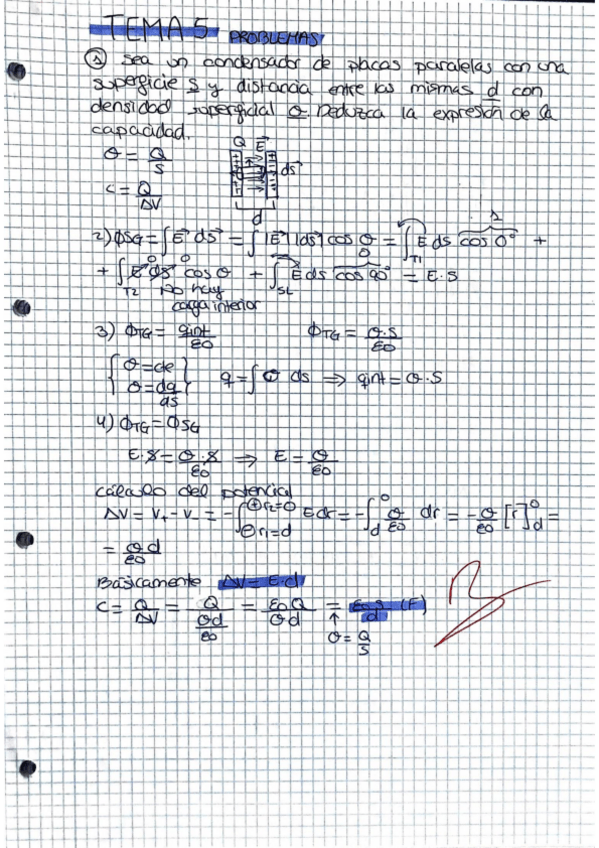 TEMA 5 PROBLEMAS
① Sea un condensador de placas paralelas con una
superficie s y distancia entre las mismas d con
densidad superficial σ Deduzca la expresión de la
capacidad.
σ = Q/S
C = Q/ΔV
Q E⃗
ds⃗
d
2) ϕSG = ∫ E⃗ ds⃗ = ∫ |E⃗| |ds⃗| cos θ = ∫T1 E ds cos 0° +
1
+ ∫T2 E⃗ ds⃗ cos θ + ∫SL E ds cos 90° = E·S
0 0 0
No hay
carga interior
3) ϕTG = qint/ε0 ϕTG = σ·S/ε0
{ σ = cte
σ = dq/ds } q = ∫ σ ds ⇒ qint = σ·S
4) ϕTG = ϕSG
E·S = σ·S/ε0 → E = σ/ε0
cálculo del potencial
ΔV = V+ - V- = -∫⊖r1=d ⊕r2=0 E dr = -∫d 0 σ/ε0 dr = -σ/ε0 [r]d 0 =
= σd/ε0
Básicamente ΔV = E·d
C = Q/ΔV = Q/(σd/ε0) = ε0Q/σd = ε0 s/d (F)
↑
σ = Q/S